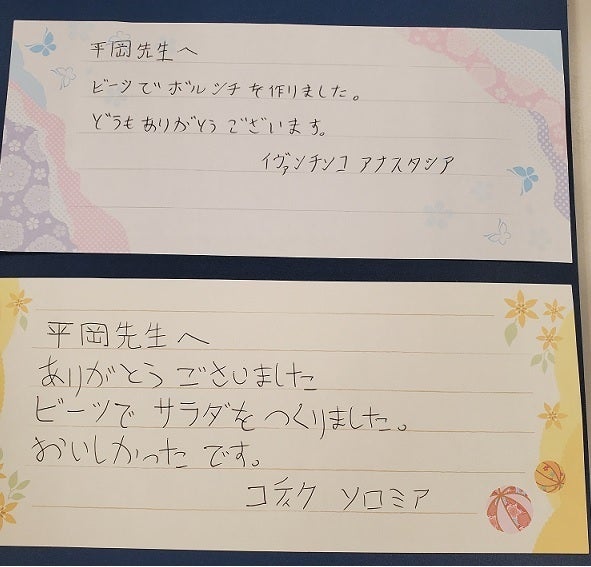 平岡先生へ
ビーツでボルシチを作りました。
どうもありがとうございます。
イヴァンチンコ アナスタシア
平岡先生へ
ありがとうございました
ビーツで サラダを つくりました。
おいしかった です。
コティク ソロミア